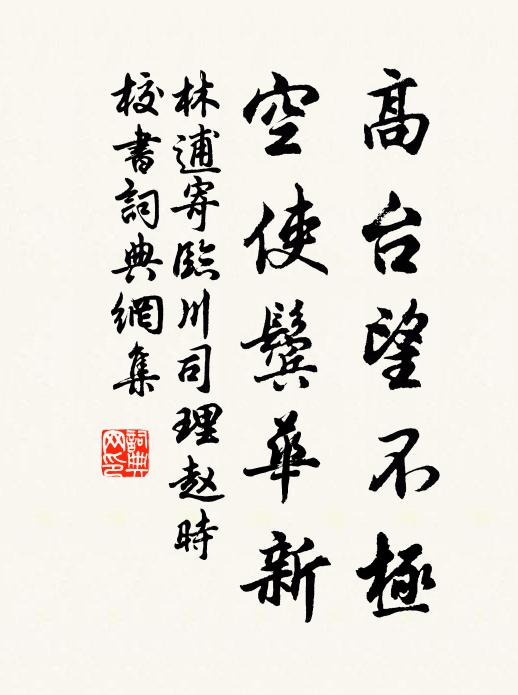 高台望不極
空使鬢華新
林逋寄臨川司理赵時
校書詞典網集
詞典
网印